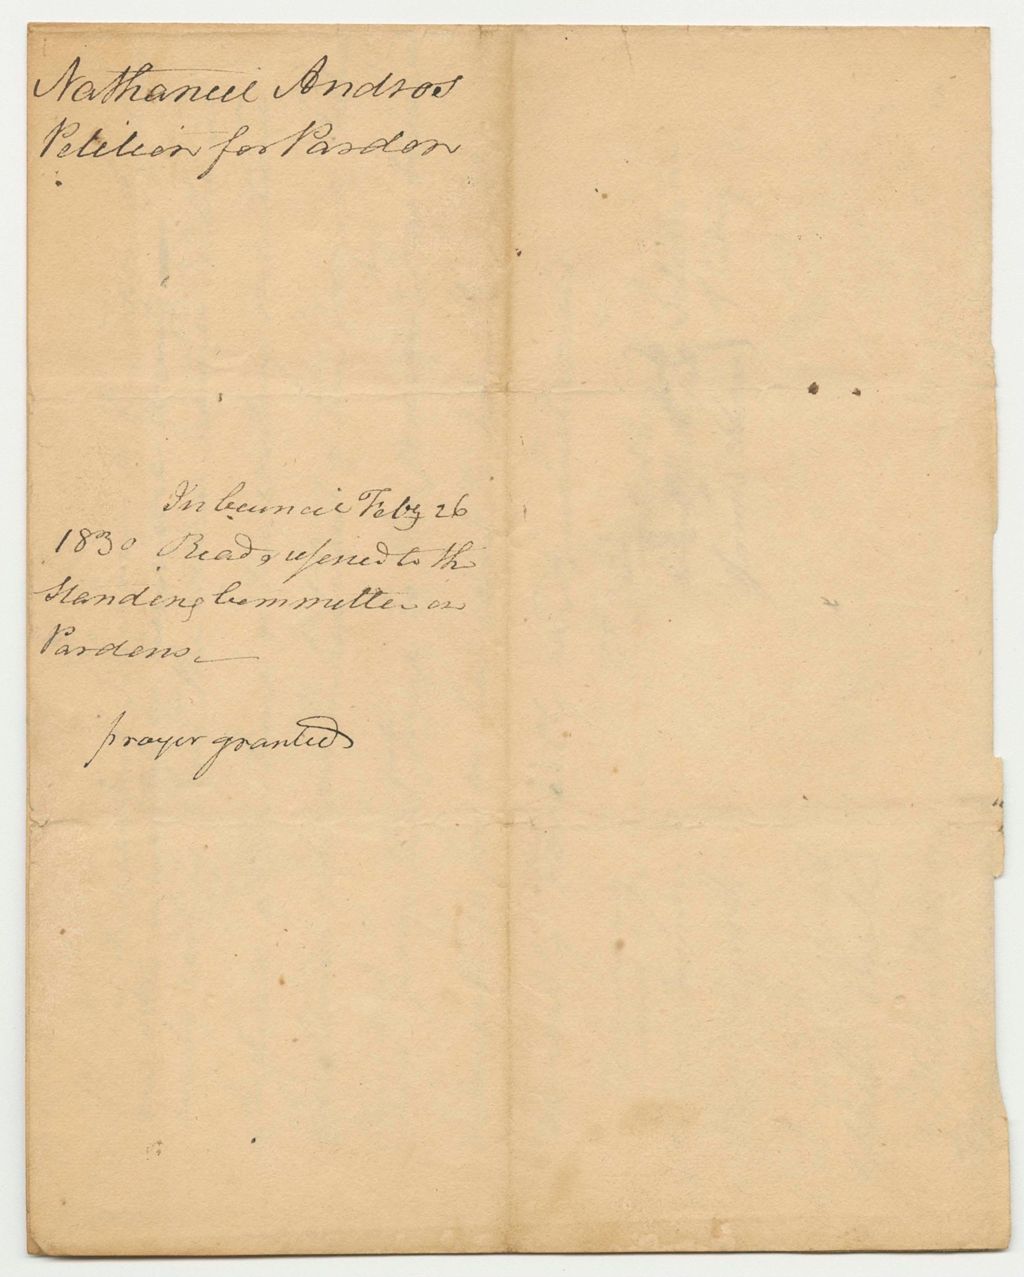 Nathaniel Andros
Petition for Pardon
In Council Feby 26
1830 Read & referred to the
Standing Committee on
Pardons.
prayer granted